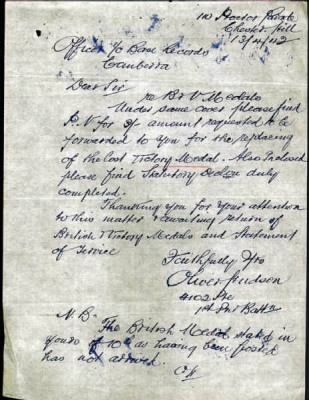 110 Hector Street
Chester Hill
13/4/42
Officer I/c Base Records
Canberra
Dear Sir
re B & V Medals
Under same cover please find
P.N for 3/- amount requested to be
forwarded to you for the replacing
of the lost Victory Medal. Also Inclosed
please find Statutory Decln duly
completed.
Thanking you for your attention
to this matter & awaiting return of
British & Victory Medals and Statement
of Service
Faithfully Yrs
Oliver Hudson
4102 Pte
1st Batt.
N.B. The British Medal stated in
yours of 10th as having been posted
has not arrived.